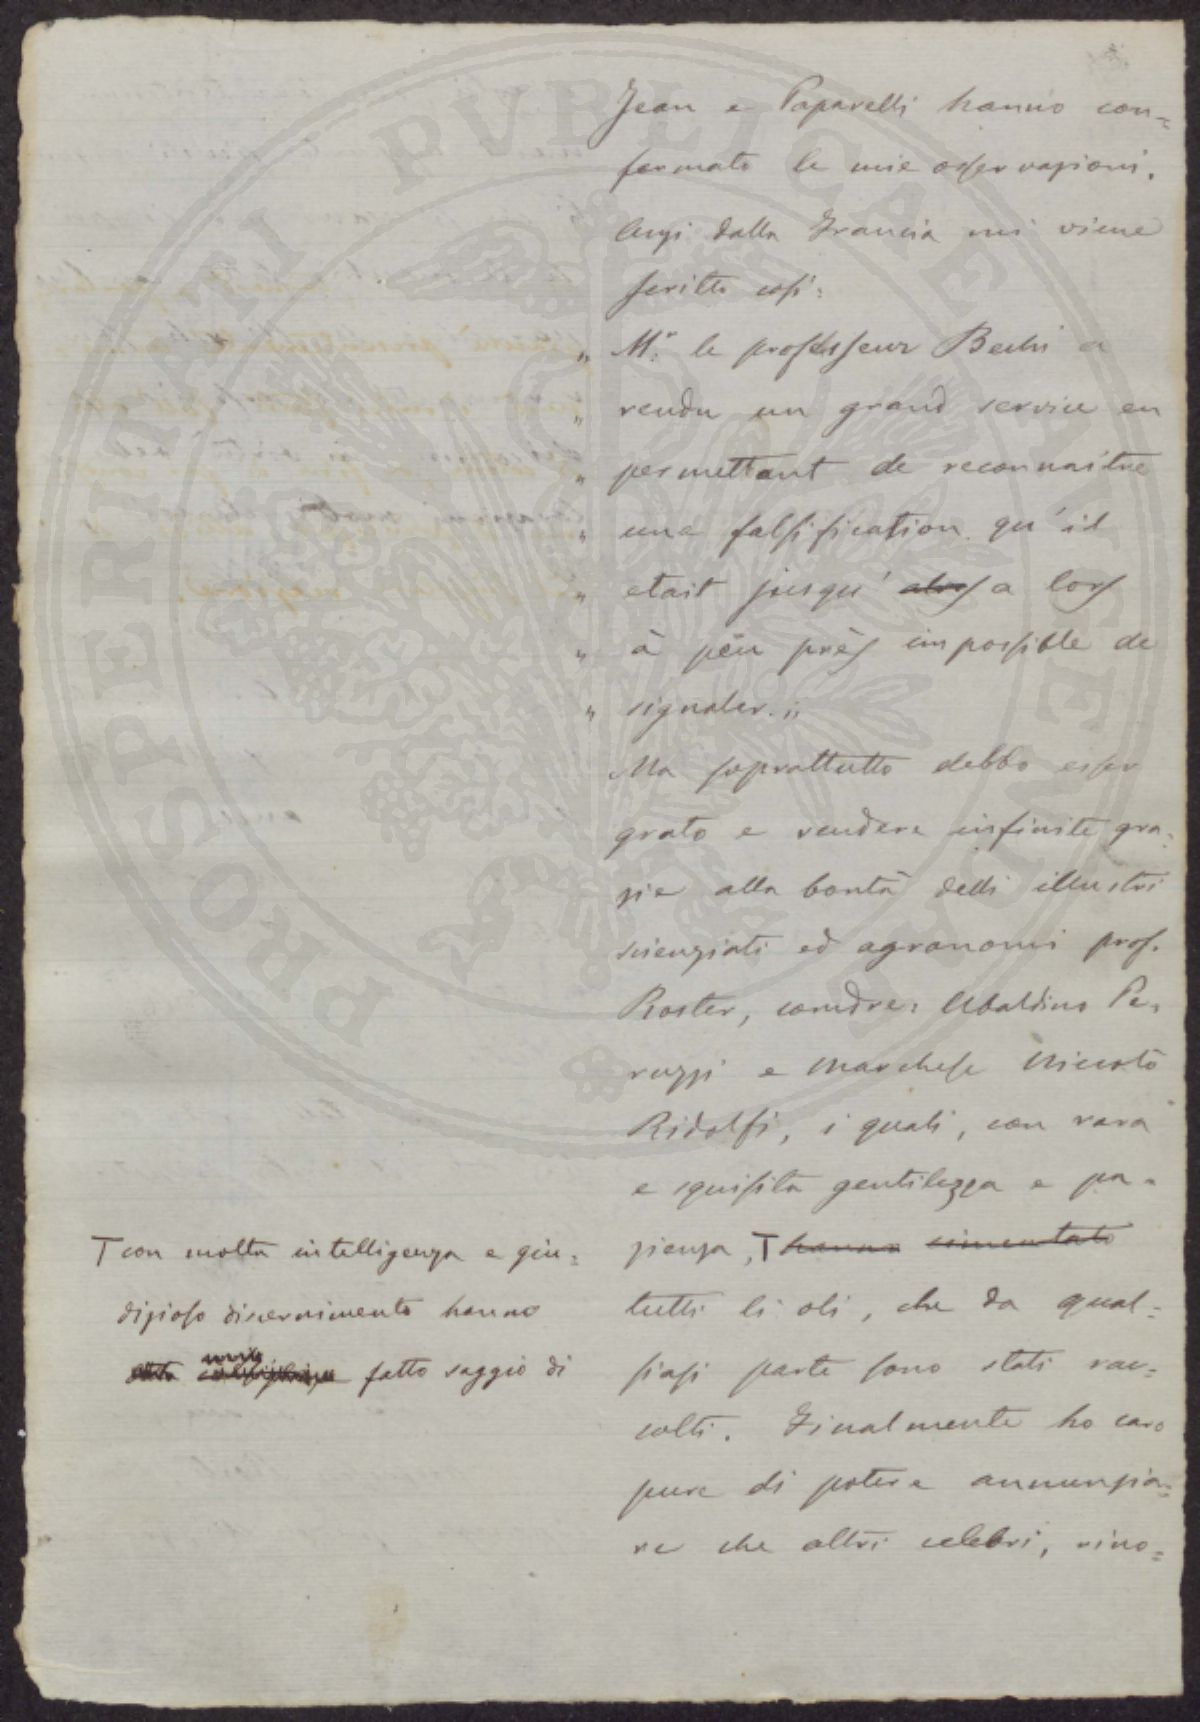 Jean e Paparelli hanno con=
fermato le mie osservazioni.
Anzi dalla Francia mi viene
scritto così:
„ Mr. le professeur Bechi a
„ rendu un grand service en
„ permettant de reconnaitre
„ une falsification qu'il
„ etait jusqu' alors a lors
„ à peu près impossible de
„ signaler. „
Ma soprattutto debbo esser
grato e rendere infinite gra=
zie alla bontà delli illustri
scienziati ed agronomi prof.
Roster, comdre: Ubaldino Pe=
ruzzi e Marchese Niccolò
Ridolfi, i quali, con rara
e squisita gentilezza e pa=
zienza, T hanno cimentato
tutti li oli, che da qual=
siasi parte sono stati rac=
colti. Finalmente ho caro
pure di potere annunzia=
re che altri celebri, rino=
T con molta intelligenza e giu=
dizioso discernimento hanno
fatto saggio di
PROSPERITATI PVBLICAE AVGENDAE